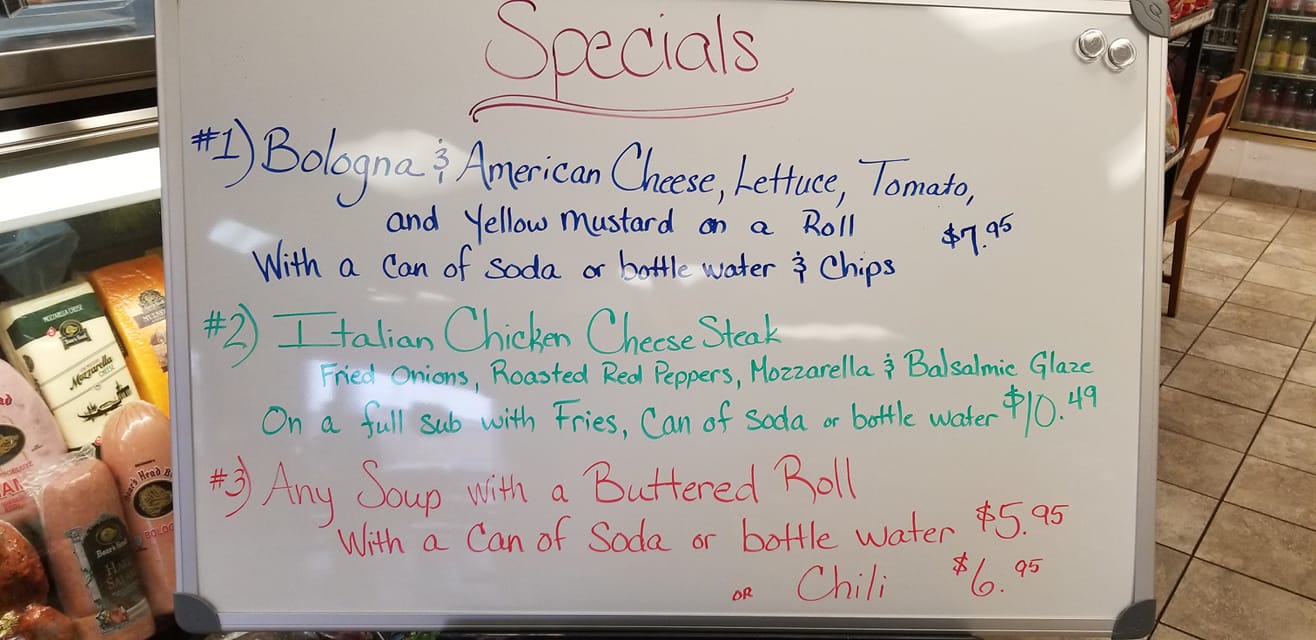 Specials
#1) Bologna & American Cheese, Lettuce, Tomato,
and Yellow Mustard on a Roll $7.95
With a Can of Soda or bottle water & Chips
#2) Italian Chicken Cheese Steak
Fried Onions, Roasted Red Peppers, Mozzarella & Balsalmic Glaze
On a full sub with Fries, Can of Soda or bottle water $10.49
#3) Any Soup with a Buttered Roll
With a Can of Soda or bottle water $5.95
OR Chili $6.95
MOZZARELLA CHEESE
Boar's Head
Mozzarella
CHEESE
Boar's Head
BOLOG
Boar's Head